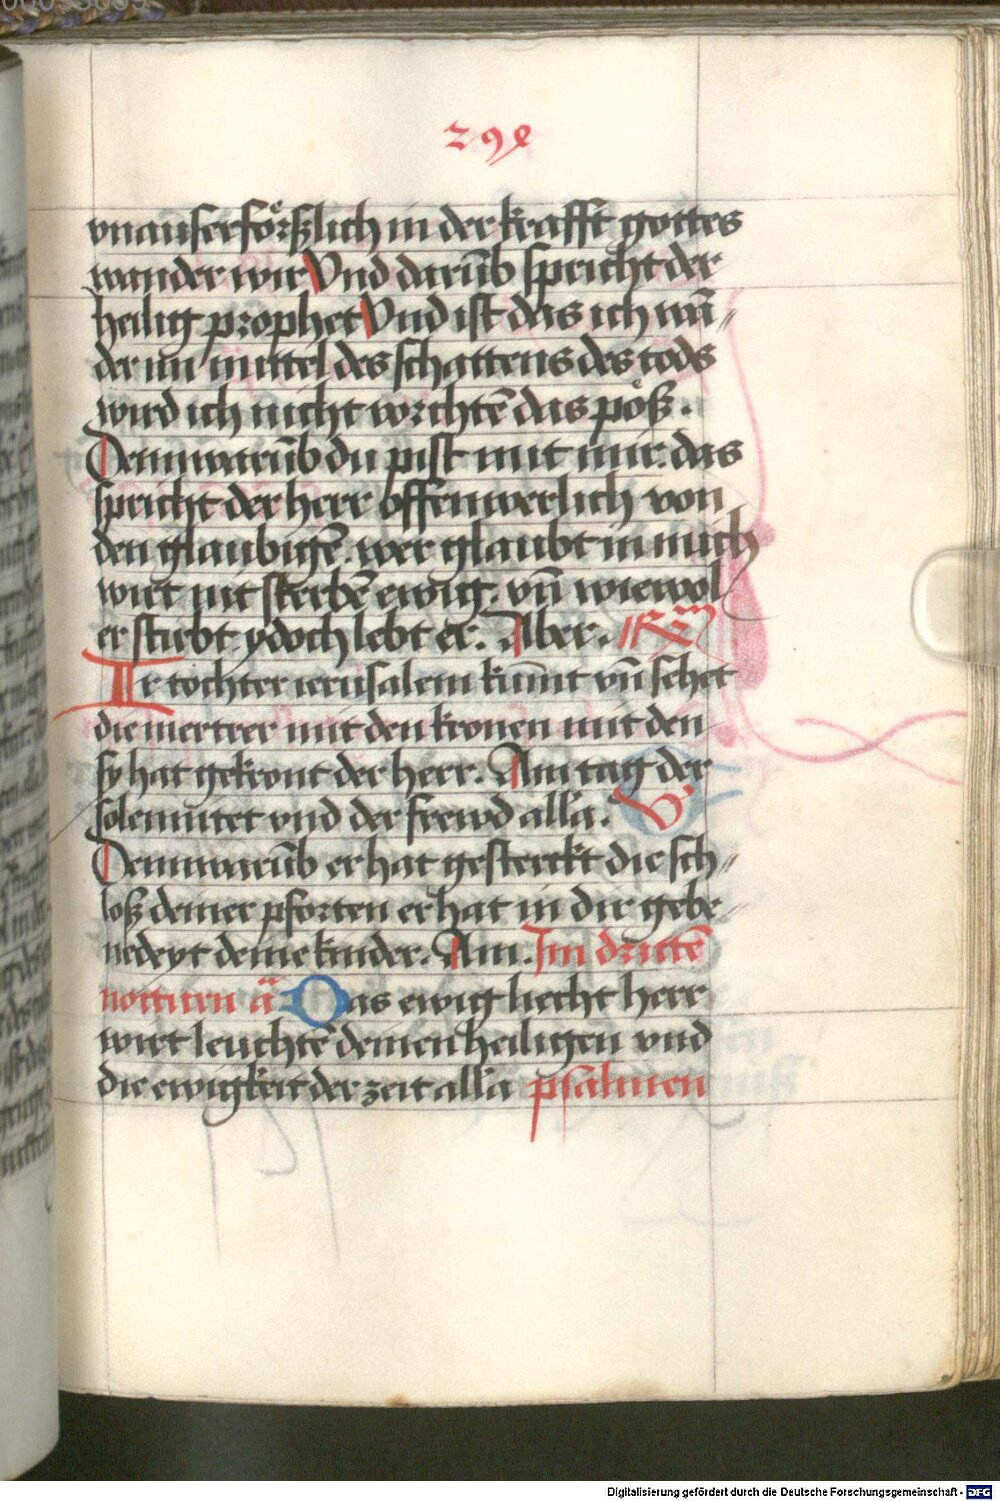 298
vnauserförßlich in der krafft gottes
wander wir Vnd darūb spricht der
heilig prophet Vnd ist das ich wā//
der im mittel des schattens des tods
wird ich nicht vorchtē das pöß.
Dennwarūb du pist mit mir. das
spricht der herr offenwerlich von
den glaubigē. wer glaubt in mich
wirt nit sterbē ewig. vn̄ wiewol
er stirbt ydoch lebt er. Aber. R
Ir tochter ierusalem kūmt vn̄ sehet
die mertrer mit den kronen mit den
sy hat gekront der herr. Am tag der
solemnitet vnd der frewd alla. V
Dennwarūb er hat gesterckt die sch//
loß deiner pforten er hat in dir gebe//
nedeyt deine kinder. Am. Im drittē
notturn ā Das ewig liecht herr
wirt leuchtē deinen heiligen vnd
die ewigkeit der zeit alla psalmen
Digitalisierung gefördert durch die Deutsche Forschungsgemeinschaft - DFG